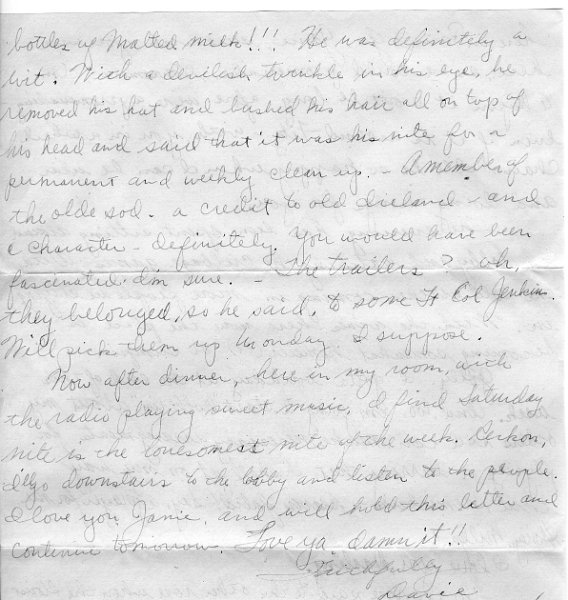 bottles of Malted milk!!! He was definitely a
wit. With a devilish twinkle in his eye, he
removed his hat and bushed his hair all on top of
his head and said that it was his nite for a
permanent and weekly clean up. - A member of
the olde sod - a credit to old Ireland - and
a character - definitely. You would have been
fascinated I'm sure. - The trailers? oh,
they belonged, so he said, to some Lt Col Jenkins.
Will pick them up Monday I suppose.
Now after dinner, here in my room, with
the radio playing sweet music, I find Saturday
nite is the lonesomest nite of the week. Reckon,
I'll go downstairs to the lobby and listen to the people.
I love you, Janie, and will hold this letter and
continue tomorrow. Love ya, damn it!!
Davie